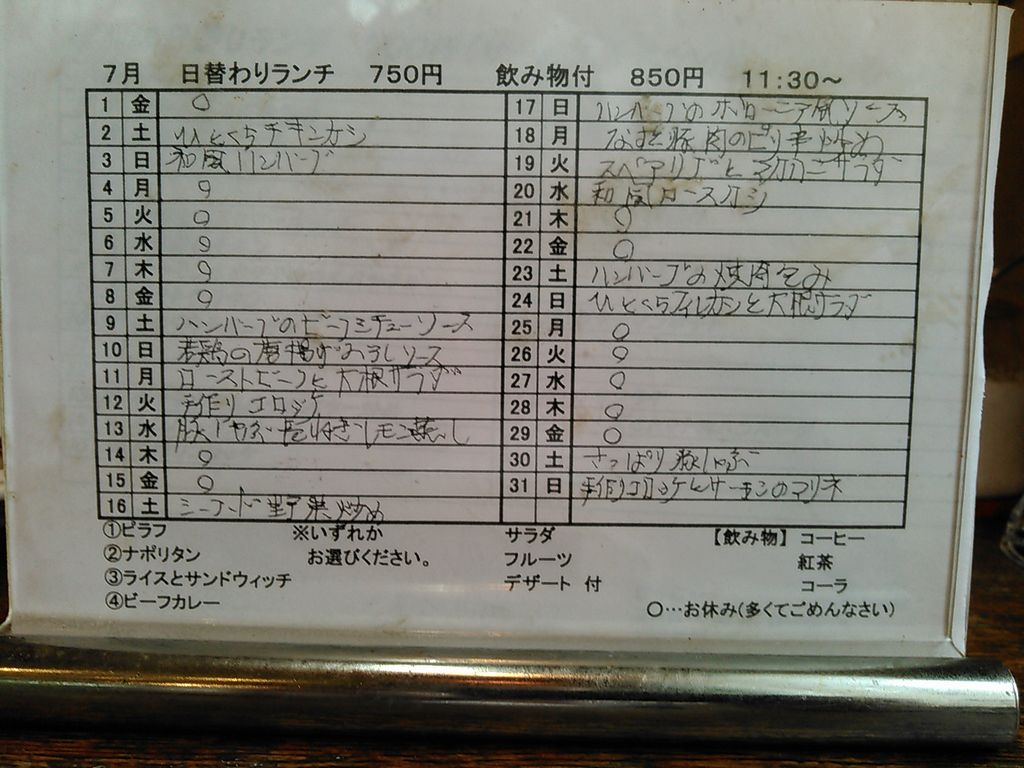 7月 日替わりランチ 750円 飲み物付 850円 11:30～
1 金 ○
2 土 ひとくちチキンカツ
3 日 和風ハンバーグ
4 月 ○
5 火 ○
6 水 ○
7 木 ○
8 金 ○
9 土 ハンバーグのビーフシチューソース
10 日 若鶏の唐揚げおろしソース
11 月 ローストビーフと大根サラダ
12 火 手作りコロッケ
13 水 豚しゃぶ
14 木 ○
15 金 ○
16 土 シーフード野菜炒め
17 日 ハンバーグのボローニア風ソース
18 月 なすと豚肉のピリ辛炒め
19 火 スペアリブとマカロニサラダ
20 水 和風ロースカツ
21 木 ○
22 金 ○
23 土 ハンバーグの焼肉包み
24 日 ひとくちフィレカツと大根サラダ
25 月 ○
26 火 ○
27 水 ○
28 木 ○
29 金 ○
30 土 さっぱり豚しゃぶ
31 日 手作りコロッケとサーモンのマリネ
①ピラフ ※いずれか
②ナポリタン お選びください。
③ライスとサンドウィッチ
④ビーフカレー
サラダ
フルーツ
デザート 付
【飲み物】 コーヒー
紅茶
コーラ
○…お休み(多くてごめんなさい)